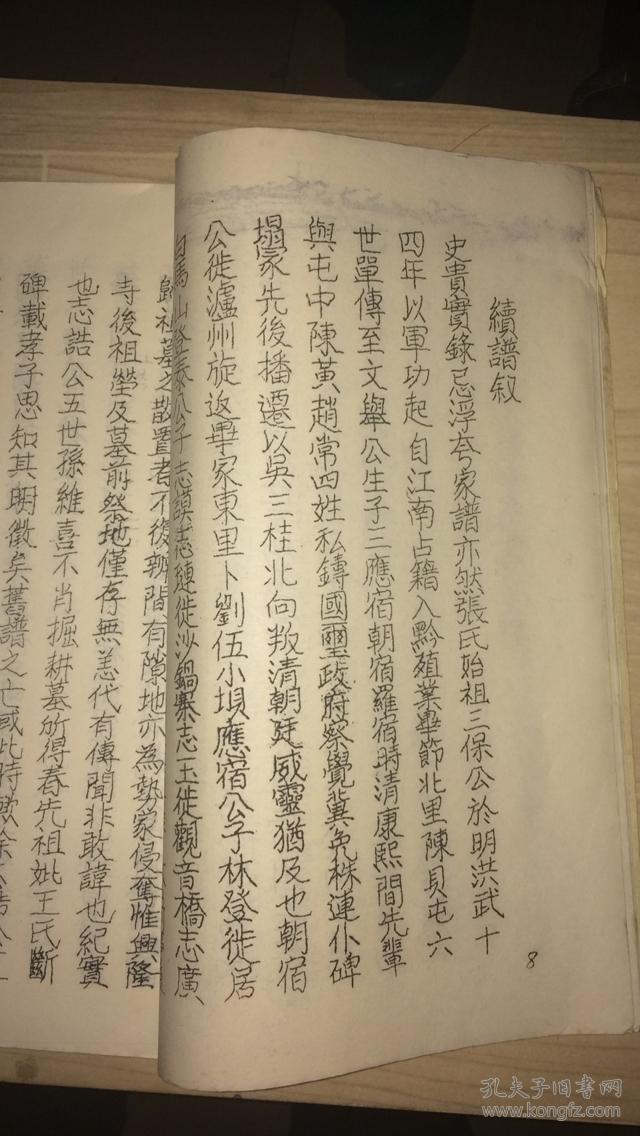 續譜叙
史貴實錄忌浮夸家譜亦然張氏始祖三保公於明洪武十
四年以軍功起自江南占籍入黔殖業畢節北里陳貝屯六
世單傳至文舉公生子三應宿朝宿羅宿時清康熙間先輩
與屯中陳黃趙常四姓私鑄國璽政府察覺冀免株連仆碑
塌冢先後播遷以吳三桂北向叛清朝廷威靈猶及也朝宿
公徙瀘州旋返畢家東里卜劉伍小壩應宿公子林登徙居
白馬山登泰公子志謨志縺徙沙鍋寨志玉徙觀音橋志廣
歸祖墓之散置者不復辨間有隙地亦為勢家侵奪惟興隆
寺後祖塋及墓前祭地僅存無恙代有傳聞非敢諱也紀實
也志誥公五世孫維喜不肖掘耕墓所得春先祖妣王氏斷
碑載孝子思知其明徵矣舊譜之亡或此時歟
8
孔夫子旧书网
www.kongfz.com